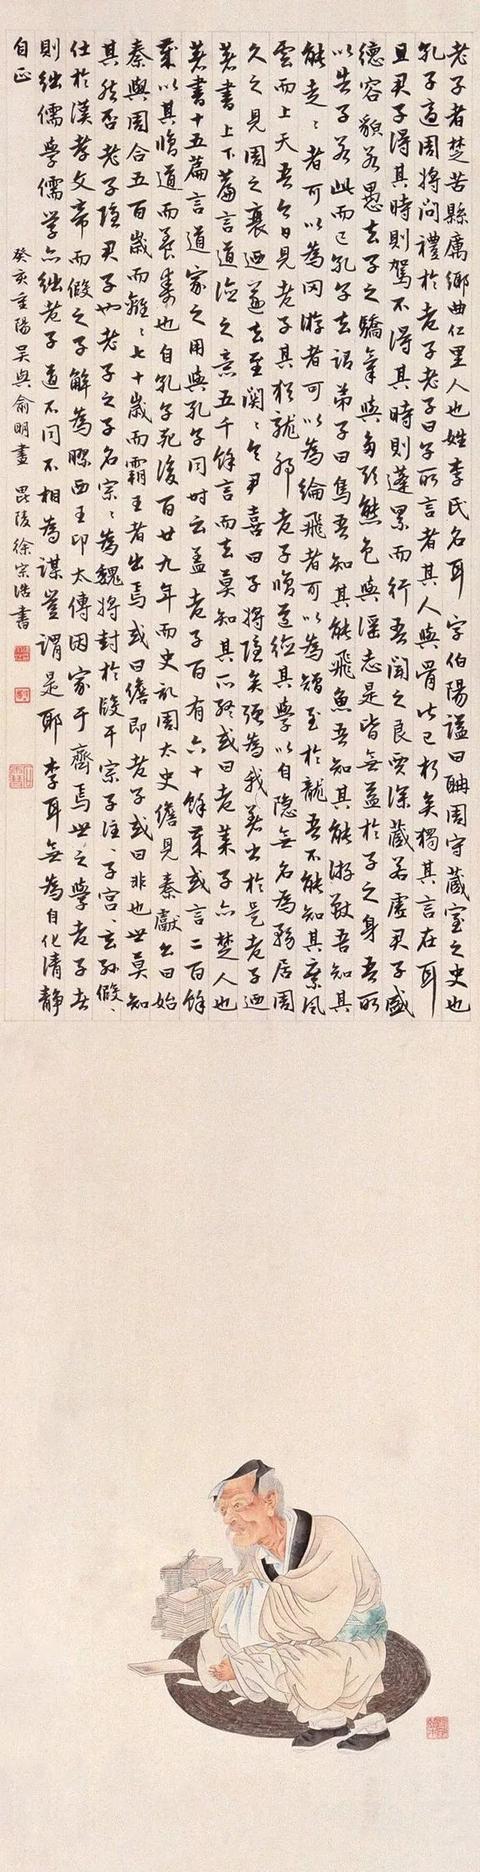 老子者楚苦縣厲鄉曲仁里人也姓李氏名耳 字伯陽謚曰聃周守藏室之史也
孔子適周將問禮於老子老子曰子所言者其人與骨皆已朽矣獨其言在耳
且君子得其時則駕不得其時則蓬累而行吾聞之良賈深藏若虛君子盛
德容貌若愚去子之驕氣與多欲態色與淫志是皆無益於子之身吾所
以告子若此而已孔子去謂弟子曰鳥吾知其能飛魚吾知其能游獸吾知其
能走〻者可以為罔游者可以為綸飛者可以為矰至於龍吾不能知其乘風
雲而上天吾今日見老子其猶龍邪老子脩道德其學以自隱無名為務居周
久之見周之衰迺遂去至關〻令尹喜曰子將隱矣彊為我著書於是老子迺
著書上下篇言道德之意五千餘言而去莫知其所終或曰老萊子亦楚人也
著書十五篇言道家之用與孔子同時云蓋老子百有六十餘歲或言二百餘
歲以其脩道而養壽也自孔子死後百廿九年而史記周太史儋見秦獻公曰始
秦與周合五百歲而離〻七十歲而霸王者出焉或曰儋即老子或曰非也世莫知
其然否老子隱君子也老子之子名宗〻為魏將封於段干宗子注〻子宮〻玄孫假〻
仕於漢孝文帝而假之子解為膠西王卬太傅因家于齊焉世之學老子者
則絀儒學儒學亦絀老子道不同不相為謀豈謂是耶李耳無為自化清靜
自正
癸亥重陽吳興俞明畫 毘陵徐宗浩書